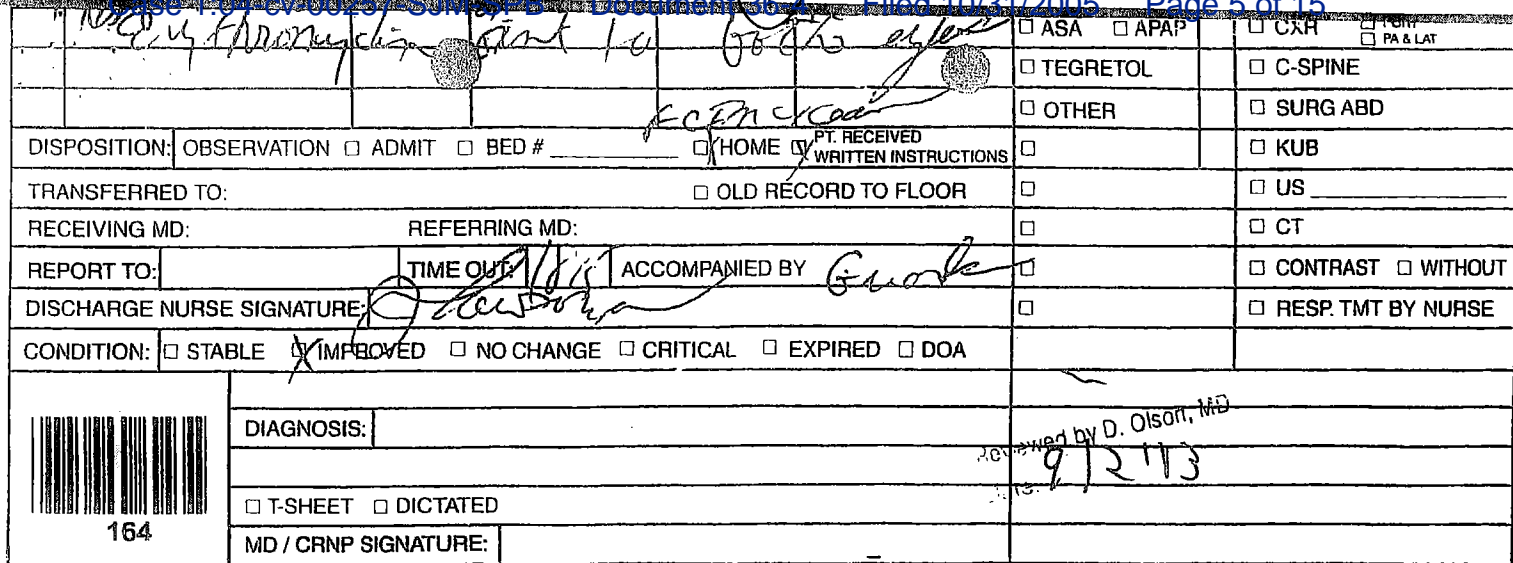 Case 1:04-cv-00257-SJM-SPB Document 36-4 Filed 10/31/2005 Page 5 of 15
Erythromycin oint to both eyes
□ ASA □ APAP □ CXR □ PORT
□ PA & LAT
□ TEGRETOL □ C-SPINE
□ OTHER □ SURG ABD
DISPOSITION: OBSERVATION □ ADMIT □ BED # ________ □ HOME □ PT. RECEIVED WRITTEN INSTRUCTIONS □ □ KUB
TRANSFERRED TO: □ OLD RECORD TO FLOOR □ □ US ________
RECEIVING MD: REFERRING MD: □ □ CT
REPORT TO: TIME OUT: ACCOMPANIED BY Guards □ □ CONTRAST □ WITHOUT
DISCHARGE NURSE SIGNATURE: □ □ RESP. TMT BY NURSE
CONDITION: □ STABLE □ IMPROVED □ NO CHANGE □ CRITICAL □ EXPIRED □ DOA
DIAGNOSIS:
Reviewed by D. Olson, MD
□ T-SHEET □ DICTATED
164
MD / CRNP SIGNATURE: